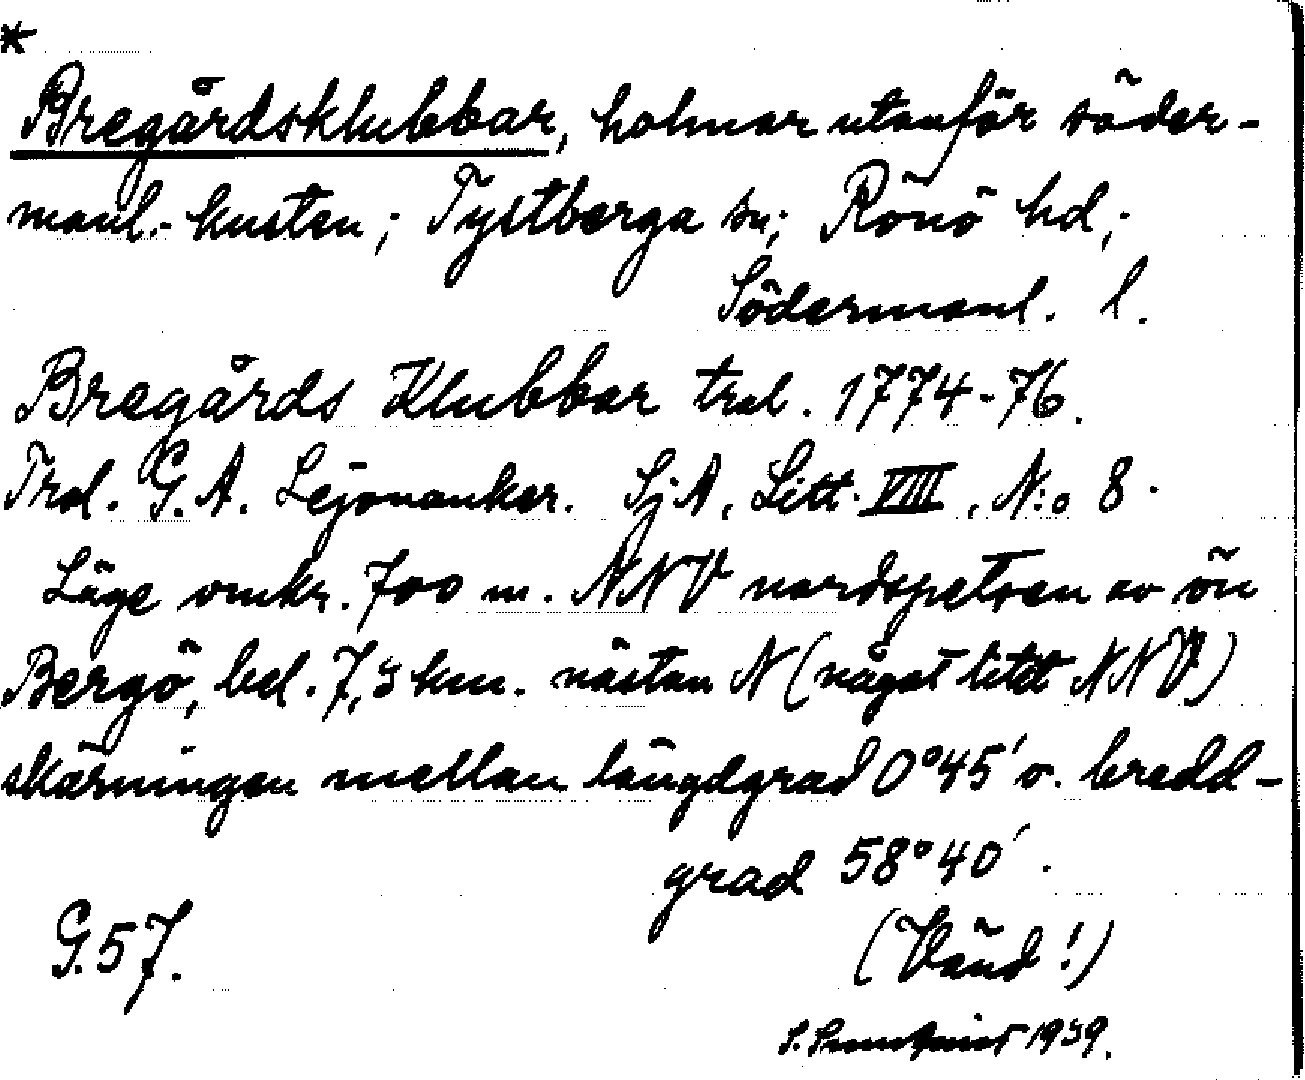 *
Bregårdsklubbar, holmar utanför söder-
manl.-kusten; Tystberga sn; Rönö hd;
Södermanl. l.
Bregårds Klubbar tral. 1774-76.
Tral. G. A. Lejonanker. Sj.A, Litt. VIII, N:o 8.
Läge omkr. 700 m. NNV nordspetsen av ön
Bergö, bel. 7,3 km. nästan N (något litet NNV)
skärningen mellan längdgrad 0°45′ o. bredd-
grad 58°40′.
G.57.
(Vänd!)
1939.